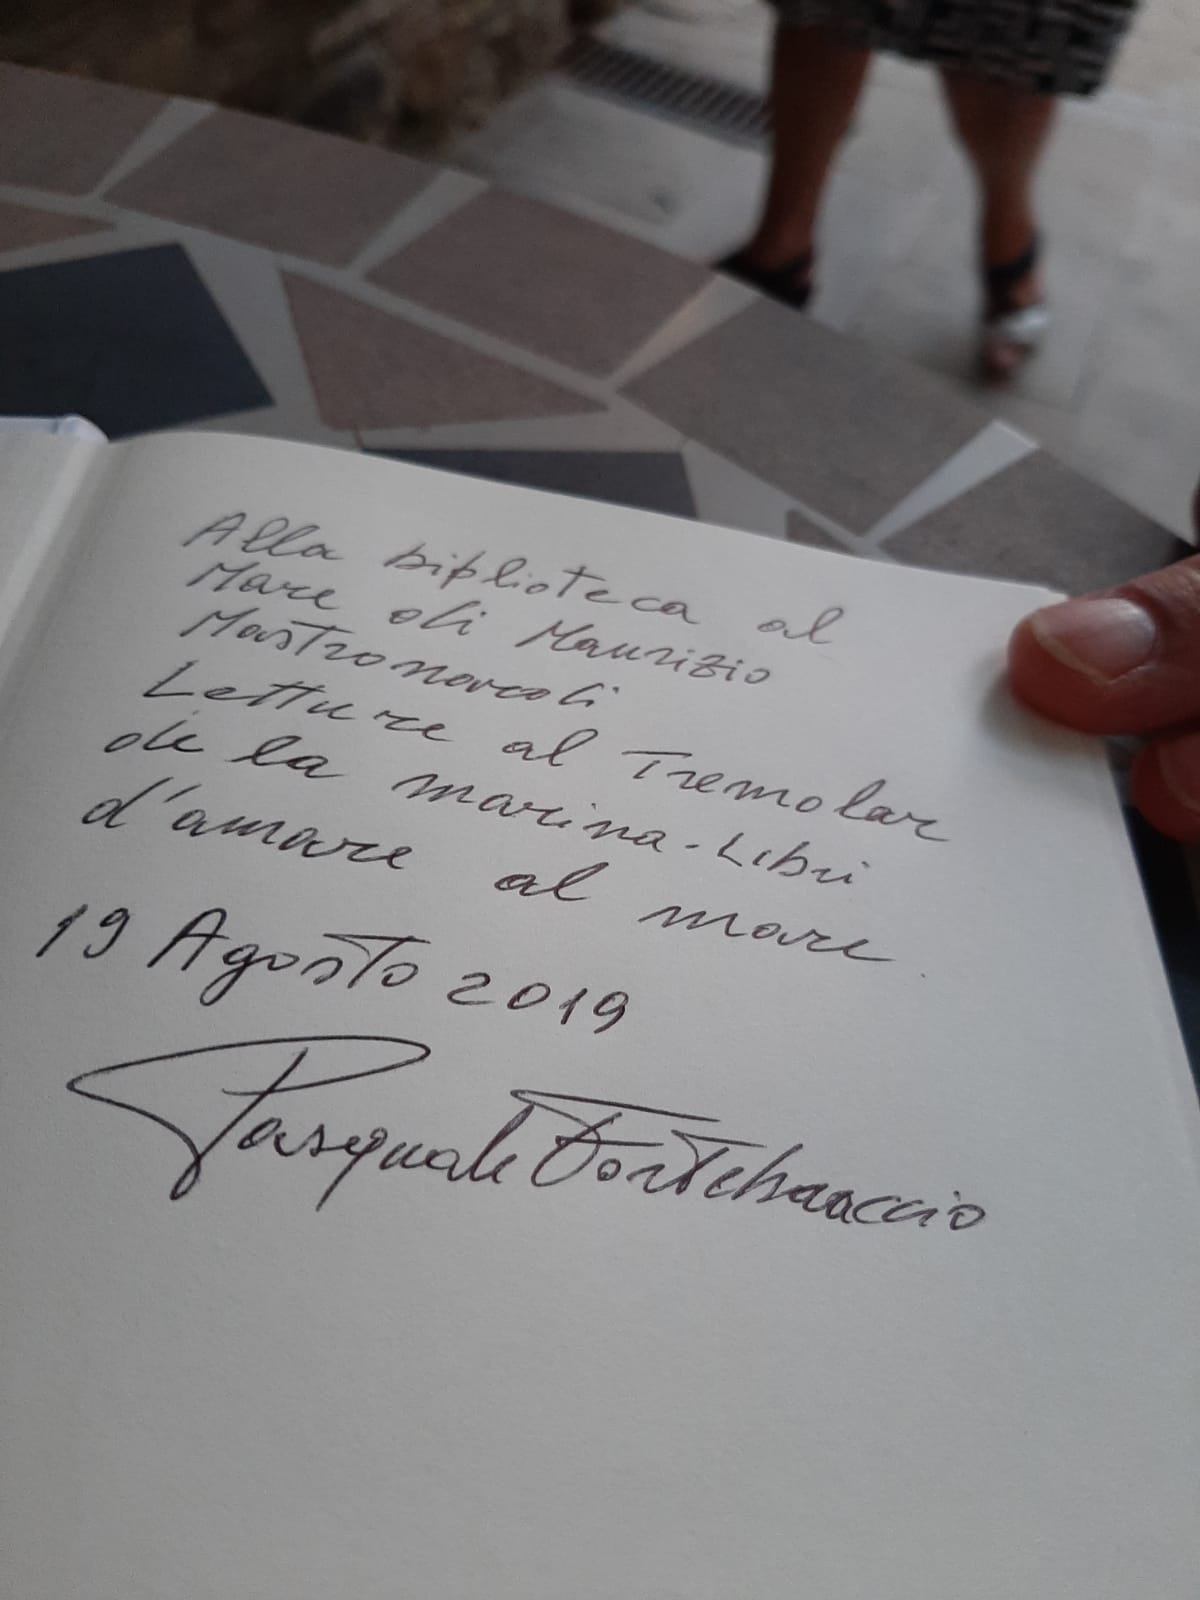 Alla biblioteca al
Mare di Maurizio
Mastronarcoli
Letture al Tremolar
de la marina - Libri
d'amare al mare
19 Agosto 2019
Pasquale Fortebraccio